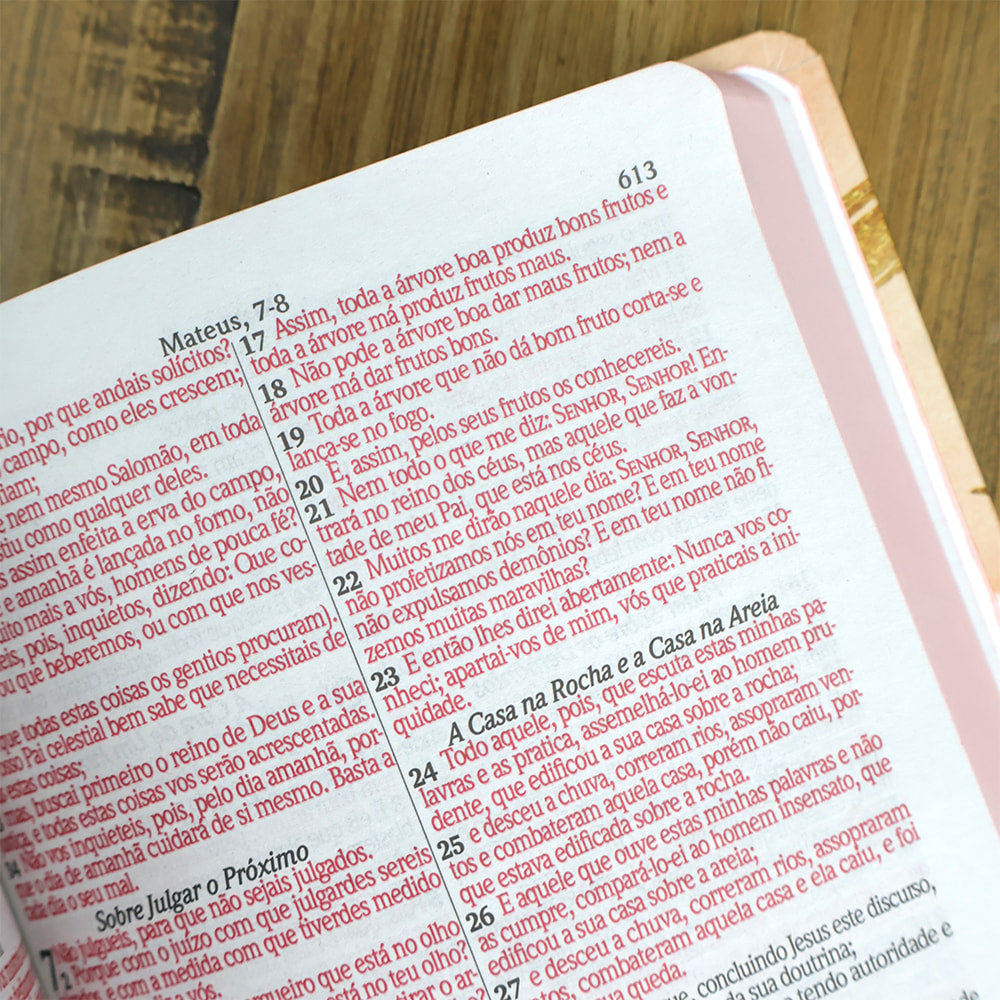 Mateus, 7-8
613
rio, por que andais solícitos?
campo, como eles crescem;
e nem mesmo Salomão, em toda
como qualquer deles.
assim enfeita a erva do campo,
e amanhã é lançada no forno, não
mais a vós, homens de pouca fé?
pois, inquietos, dizendo: Que co-
ou que beberemos, ou com que nos ves-
que todas estas coisas os gentios procuram).
Pai celestial bem sabe que necessitais de
estas coisas;
buscai primeiro o reino de Deus e a sua
e todas estas coisas vos serão acrescentadas.
34 Não vos inquieteis, pois, pelo dia amanhã, por-
que o dia de amanhã cuidará de si mesmo. Basta a
cada dia o seu mal.
Sobre Julgar o Próximo
7 Não julgueis, para que não sejais julgados.
2 Porque com o juízo com que julgardes sereis
e com a medida com que tiverdes medido
a vós.
que está no olho
está no teu olho?
tirar o ar-
17 Assim, toda a árvore boa produz bons frutos e
toda a árvore má produz frutos maus.
18 Não pode a árvore boa dar maus frutos; nem a
árvore má dar frutos bons.
19 Toda a árvore que não dá bom fruto corta-se e
lança-se no fogo.
20 E, assim, pelos seus frutos os conhecereis.
21 Nem todo o que me diz: SENHOR, SENHOR! En-
trará no reino dos céus, mas aquele que faz a von-
tade de meu Pai, que está nos céus.
22 Muitos me dirão naquele dia: SENHOR, SENHOR,
não profetizamos nós em teu nome? E em teu nome
não expulsamos demônios? E em teu nome não fi-
zemos muitas maravilhas?
23 E então lhes direi abertamente: Nunca vos co-
nheci; apartai-vos de mim, vós que praticais a ini-
quidade.
A Casa na Rocha e a Casa na Areia
24 Todo aquele, pois, que escuta estas minhas pa-
lavras e as pratica, assemelhá-lo-ei ao homem pru-
dente, que edificou a sua casa sobre a rocha;
25 e desceu a chuva, correram rios, assopraram ven-
tos e combateram aquela casa, porém não caiu, por-
que estava edificada sobre a rocha.
26 E aquele que ouve estas minhas palavras e não
as cumpre, compará-lo-ei ao homem insensato, que
edificou a sua casa sobre a areia;
27 e desceu a chuva, correram rios, assopraram
ventos, combateram aquela casa e ela caiu, e foi
sua queda.
concluindo Jesus este discurso,
da sua doutrina;
tendo autoridade e